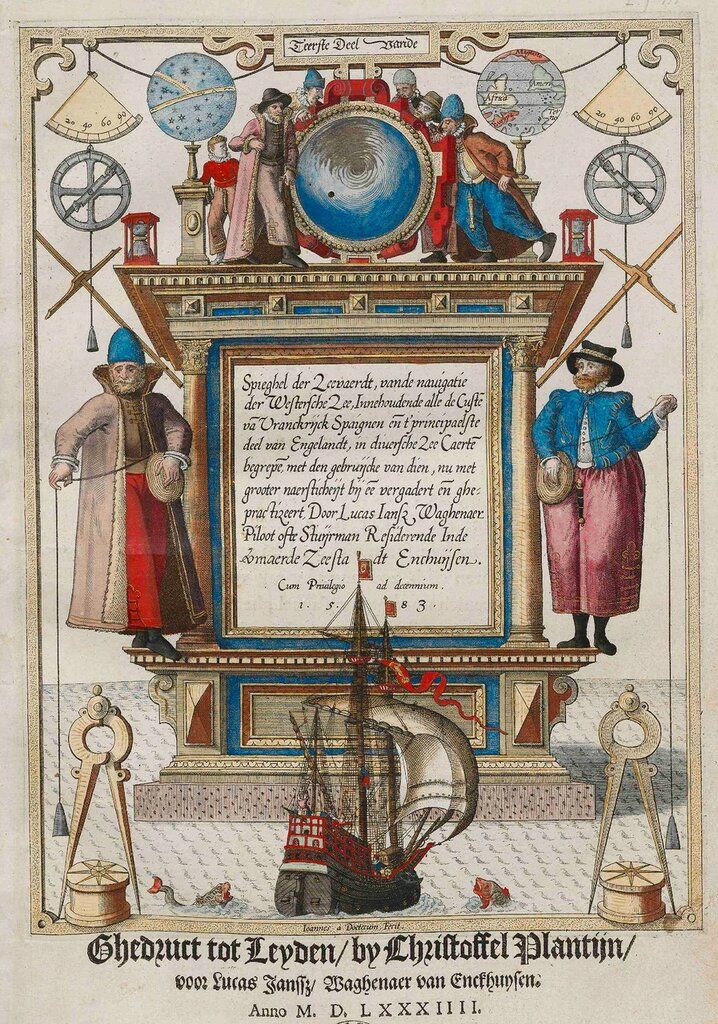 Teerste Deel Vande
20 40 60 90
Africa
Ameri
20 40 60 90
Spieghel der Zeevaerdt, vande nauigatie
der Westersche Zee, Innehoudende alle de Custē
vā Vranckrijck Spaignen eñ t'principaelste
deel van Engelandt, in diuersche Zee Caertē
begrepē, met den gebruijcke van dien, nu met
grooter naersticheijt bij eē vergadert eñ ghe-
practizeert, Door Lucas Iansz Waghenaer
Piloot ofte Stuijrman Residerende Inde
vermaerde Zeesta dt Enchuijsen.
Cum Priuilegio ad decennium.
1. 5. 83.
Ioannes à Doetecum Fecit
Ghedruct tot Leyden/ by Christoffel Plantijn/
voor Lucas Janssz/ Waghenaer van Enckhuysen.
Anno M. D. LXXXIIII.